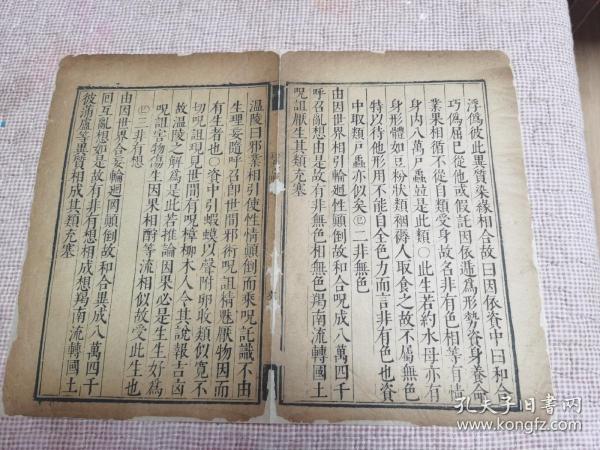 浮僞彼此異質染緣相合故曰因依資中曰和合
巧僞屈巳從他或假託因依遁爲形勢資身養命
業果相循不從自類受身故名非有色相等有情
身内八萬戸蟲竝是此類○此生若約水母亦有
身形體如豆粉狀類稠磚人取食之故不屬無色
特以待他形用不能自全色方而言非有色也資
中取類戸蟲亦似矣㊁二非無色
由因世界相引輪迴性顚倒故和合呪成八萬四千
呼召亂想由是故有非無色相無色羯南流轉國土
呪詛厭生其類充塞
温陵曰邪業相引使性情顚倒而乘呪託識不由
生理妄隨呼召卽世間邪術呪詛精魅厭物因而
有生者也○資中引蝦蟆以聲附卵收類似寛不
切呪詛現見世間有呪樟柳木人令其說報吉凶
故温陵之解爲是此若推論因果必是生生好爲
呪詛害物傷生因果相酧等流相似故受此生也
三非有想
由因世界合妄輪迴罔顚倒故和合異成八萬四千
回互亂想如是故有非有想相成想羯南流轉國土
彼蒲盧等異質相成其類充塞
孔夫子旧书网
www.kongfz.com